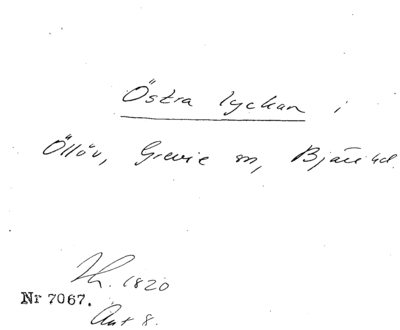 Östra lyckan i
Öllöv, Grevie sn, Bjäre hd.
1820
Nr 7067.
Ant 8.